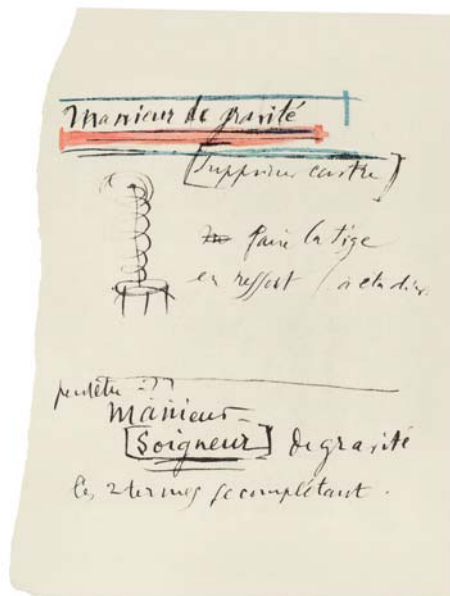 Manieur de gravité
[Supprimer
faire la tige
en ressort (à étudier.
peutêtre :??
Manieur -
[Soigneur] de gravité
les 2 termes se complétant.